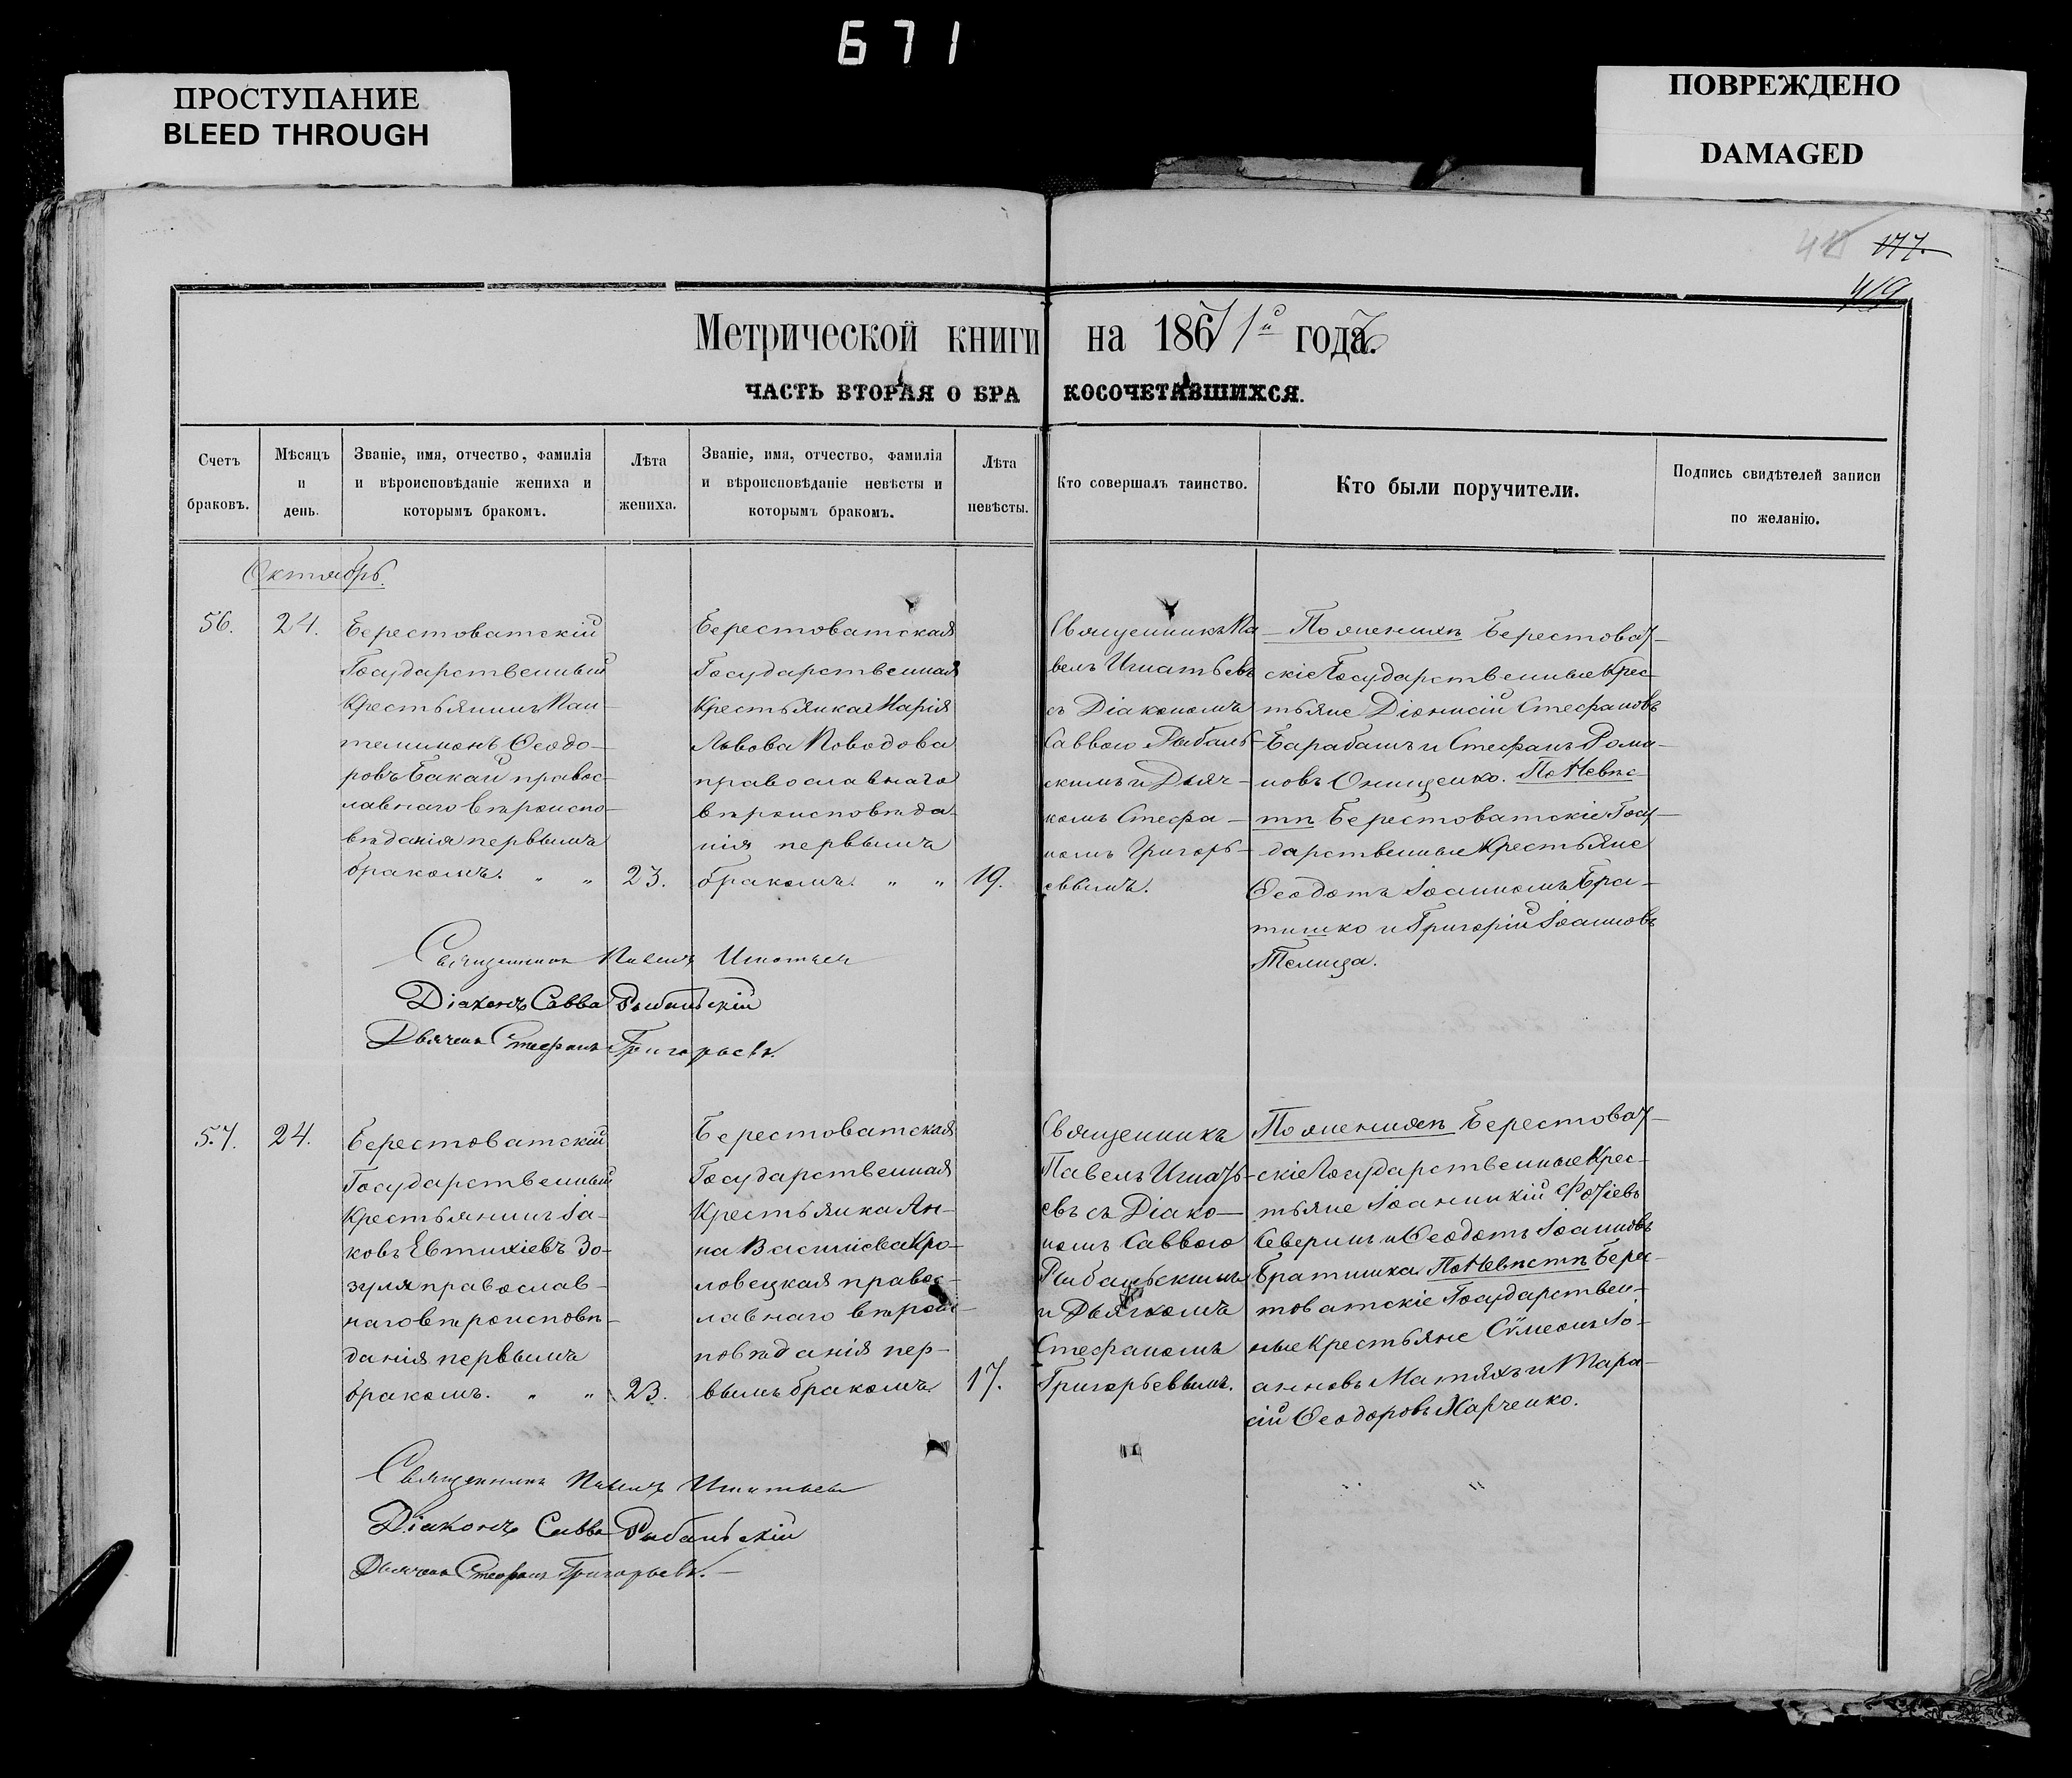 671
ПРОСТУПАНИЕ
BLEED THROUGH
ПОВРЕЖДЕНО
DAMAGED
177.
419
Метрической книги на 1867 1й года.
ЧАСТЬ ВТОРАЯ О БРАКОСОЧЕТАВШИХСЯ.
Счетъ браковъ.
Мѣсяцъ и день.
Званіе, имя, отчество, фамилія
и вѣроисповѣданіе жениха и
которымъ бракомъ.
Лѣта жениха.
Званіе, имя, отчество, фамилія
и вѣроисповѣданіе невѣсты и
которымъ бракомъ.
Лѣта невѣсты.
Кто совершалъ таинство.
Кто были поручители.
Подпись свидѣтелей записи
по желанію.
Октябрь.
56.
24.
Берестоватскій
Государственный
Крестьянинъ Пан-
телимонъ Ѳеодо-
ровъ Бакай правос-
лавнаго вѣроиспо-
вѣданія первымъ
бракомъ. „ „
23.
Берестоватская
Государственная
Крестьянка Марія
Львова Поводова
православнаго
вѣроисповѣда-
нія первымъ
бракомъ. „ „
19.
Священникъ Па-
велъ Игнатьевъ
съ Діакономъ
Саввою Рыбаль-
скимъ и Дьяч-
комъ Стефа-
номъ Григорь-
евымъ.
По женихѣ Берестоват-
скіе Государственные Крес-
тьяне Діонисій Стефановъ
Барабашъ и Стефанъ Рома-
новъ Онищенко. По Невѣс-
тѣ Берестоватскіе Госу-
дарственные Крестьяне
Ѳеодотъ Іоанномъ Бра-
тишко и Григорій Іоанновъ
Телица.
Священникъ Павелъ Игнатьев
Діаконъ Савва Рыбальскій
Дьячекъ Стефанъ Григорьевъ.
57.
24.
Берестоватскій
Государственный
Крестьянинъ Іа-
ковъ Евтихіевъ Зо-
зуля православ-
наго вѣроисповѣ-
данія первымъ
бракомъ. „ „
23.
Берестоватская
Государственная
Крестьянка Ан-
на Василіева Кро-
ловецкая правос-
лавнаго вѣроис-
повѣданія пер-
вымъ бракомъ.
17.
Священникъ
Павелъ Игнать-
евъ съ Діако-
номъ Саввою
Рыбальскимъ
и Дьячкомъ
Стефаномъ
Григорьевымъ.
По женихѣ Берестоват-
скіе Государственные Крес-
тьяне Іоанникій Фотіевъ
Северинъ и Ѳеодотъ Іоанновъ
Братишка По Невѣстѣ Берес-
товатскіе Государствен-
ные Крестьяне Сѵмеонъ Іо-
анновъ Матяхъ и Тара-
сій Ѳеодоровъ Харченко.
Священникъ Павелъ Игнатьев
Діаконъ Савва Рыбальскій
Дьячекъ Стефанъ Григорьевъ.